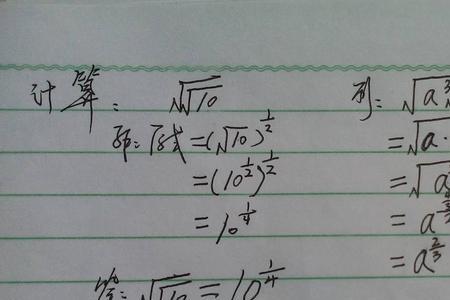 计算: √√10
解:原式=(√10)^{1/2}
=(10^{1/2})^{1/2}
=10^{1/4}
答:√√10=10^{1/4}
例:√a
=√a·
=√a
=a
=a^{2/3}